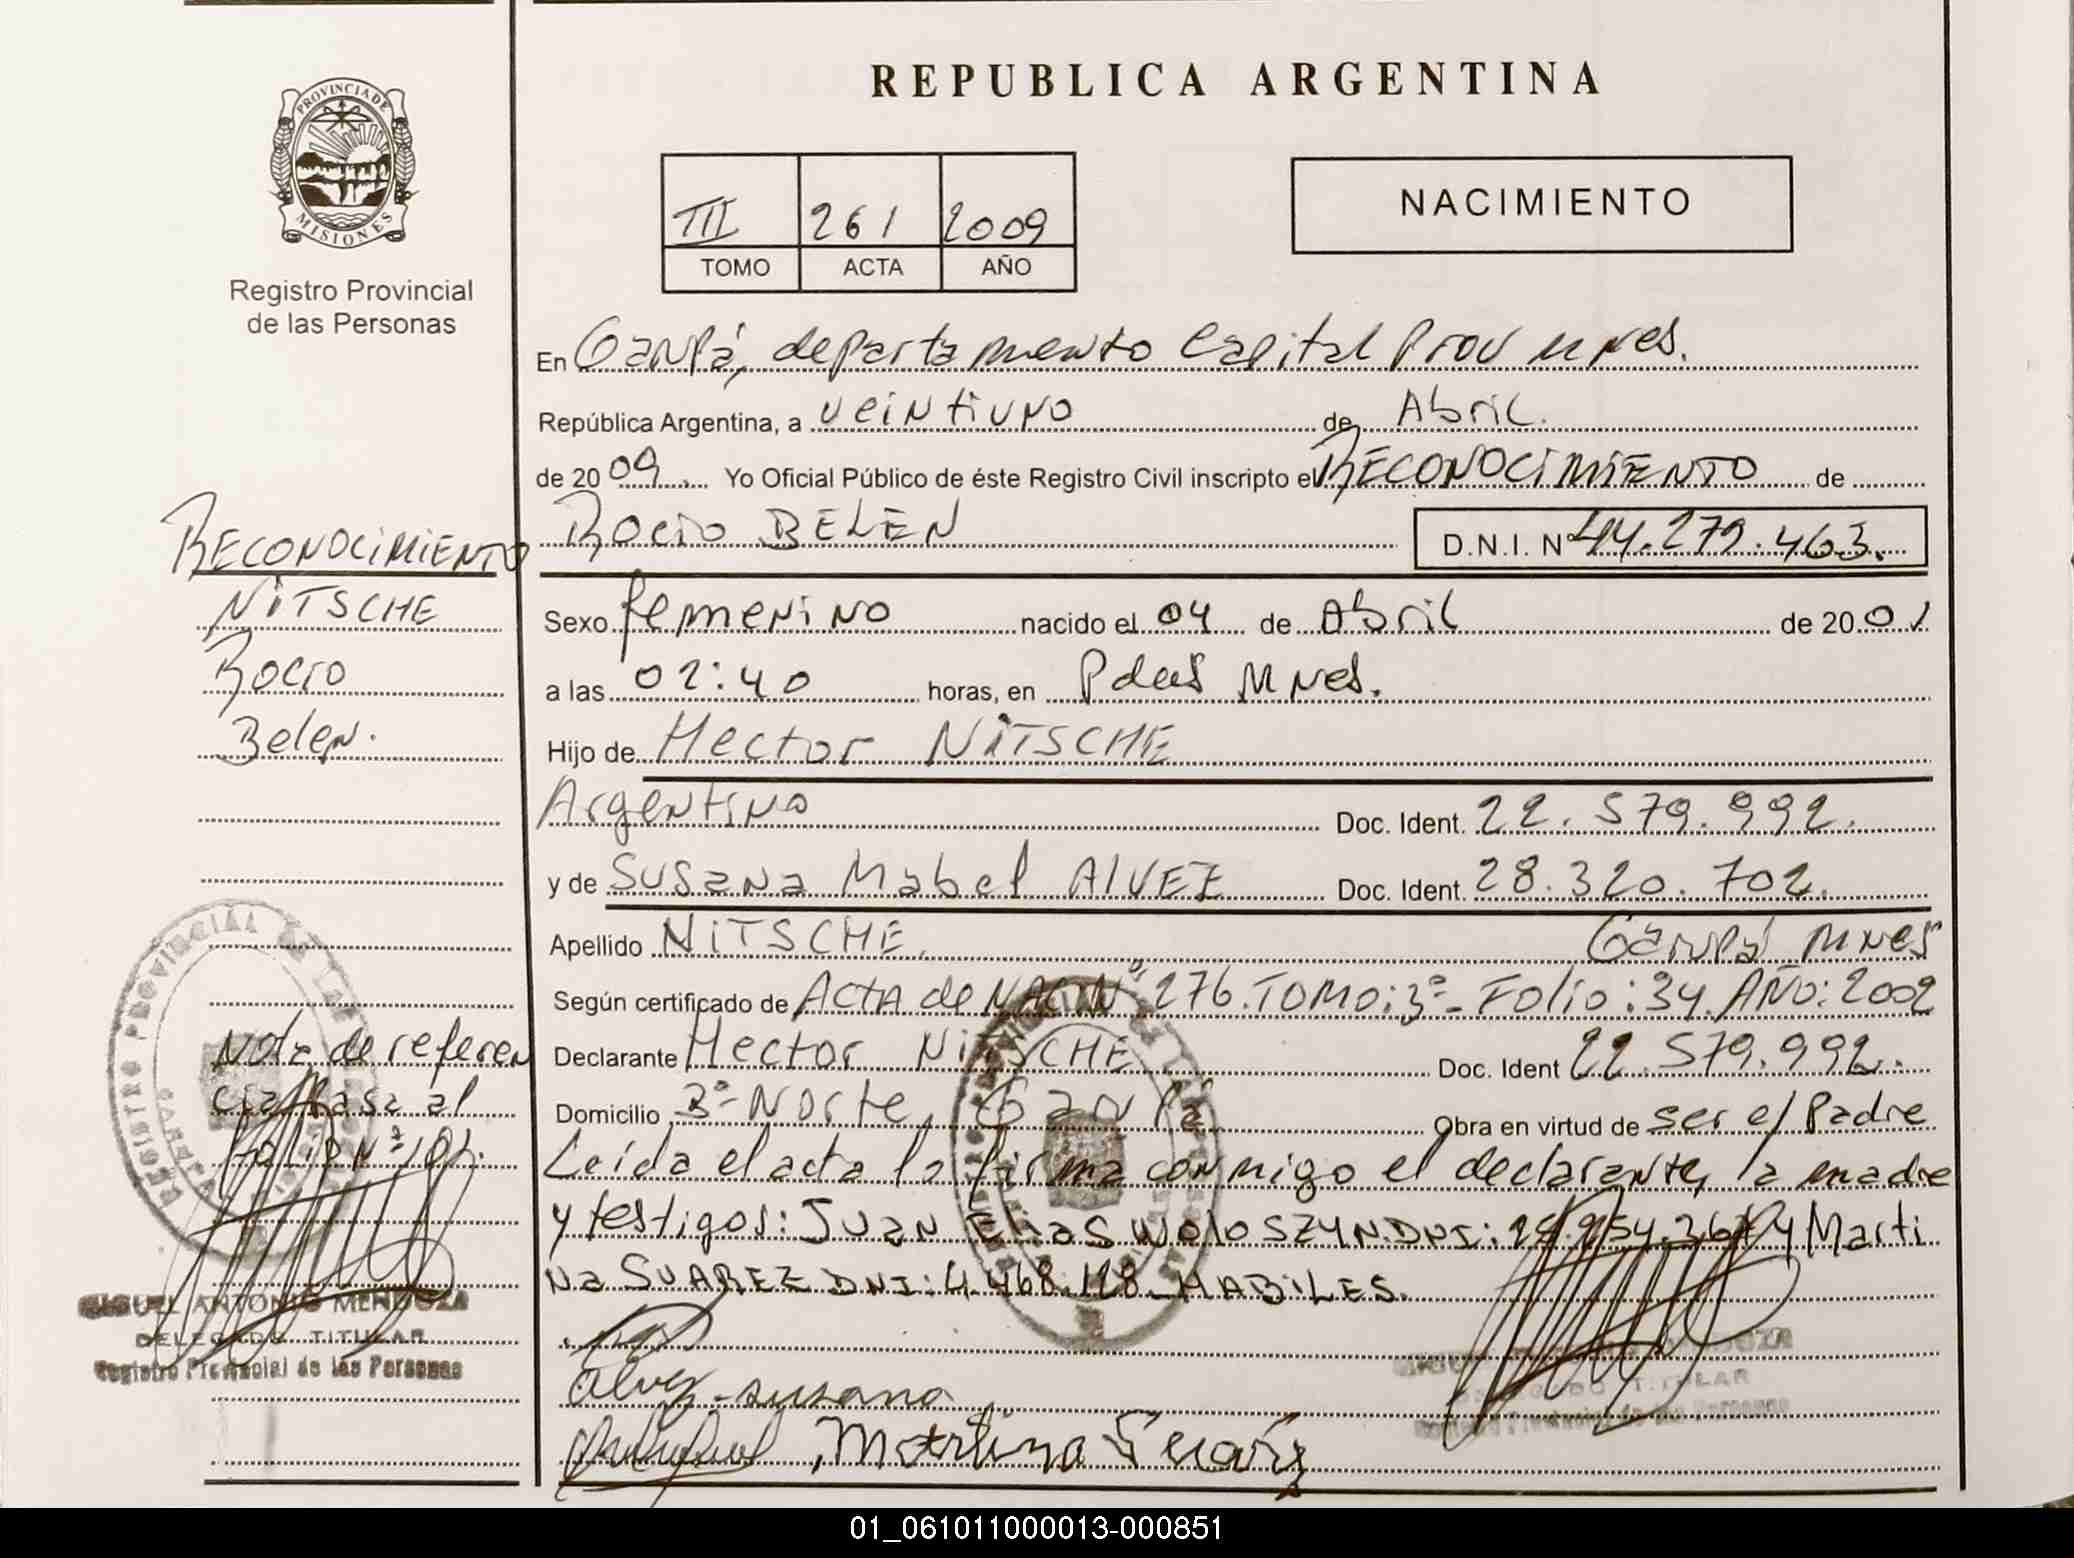 REPUBLICA ARGENTINA
PROVINCIA DE
MISIONES
Registro Provincial
de las Personas
III 261 2009
TOMO ACTA AÑO
NACIMIENTO
En Garupá, departamento Capital Prov Mnes.
República Argentina, a veintiuno de Abril.
de 2009. Yo Oficial Público de éste Registro Civil inscripto el RECONOCIMIENTO de
ROCIO BELEN D.N.I. Nº 44.279.463.
RECONOCIMIENTO
NITSCHE
Rocio
Belen.
Sexo femenino nacido el 04 de Abril de 2001
a las 02:40 horas, en Pdas Mnes.
Hijo de Hector NITSCHE
Argentino Doc. Ident. 22.579.992.
y de Susana Mabel ALVEZ Doc. Ident. 28.320.702.
Apellido NITSCHE. Garupá Mnes
Según certificado de Acta de NAC Nº 276. TOMO: 3º- Folio: 34. AÑO: 2002
Declarante Hector NITSCHE Doc. Ident 22.579.992.
Domicilio 3º- Norte, Garupá Obra en virtud de ser el Padre
Leída el acta la firma conmigo el declarante, la madre
y testigos: Juan Elias WOLOSZYN. DNI: y Marti
na SUAREZ DNI: 4.468.128_ HABILES.
Nota de referen
cia pasa al
Folio Nº
REGISTRO PROVINCIAL DE LAS
MIGUEL ANTONIO MENDOZA
DELEGADO TITULAR
Registro Provincial de las Personas
Alvez susana
Martina Suarez
01_061011000013-000851